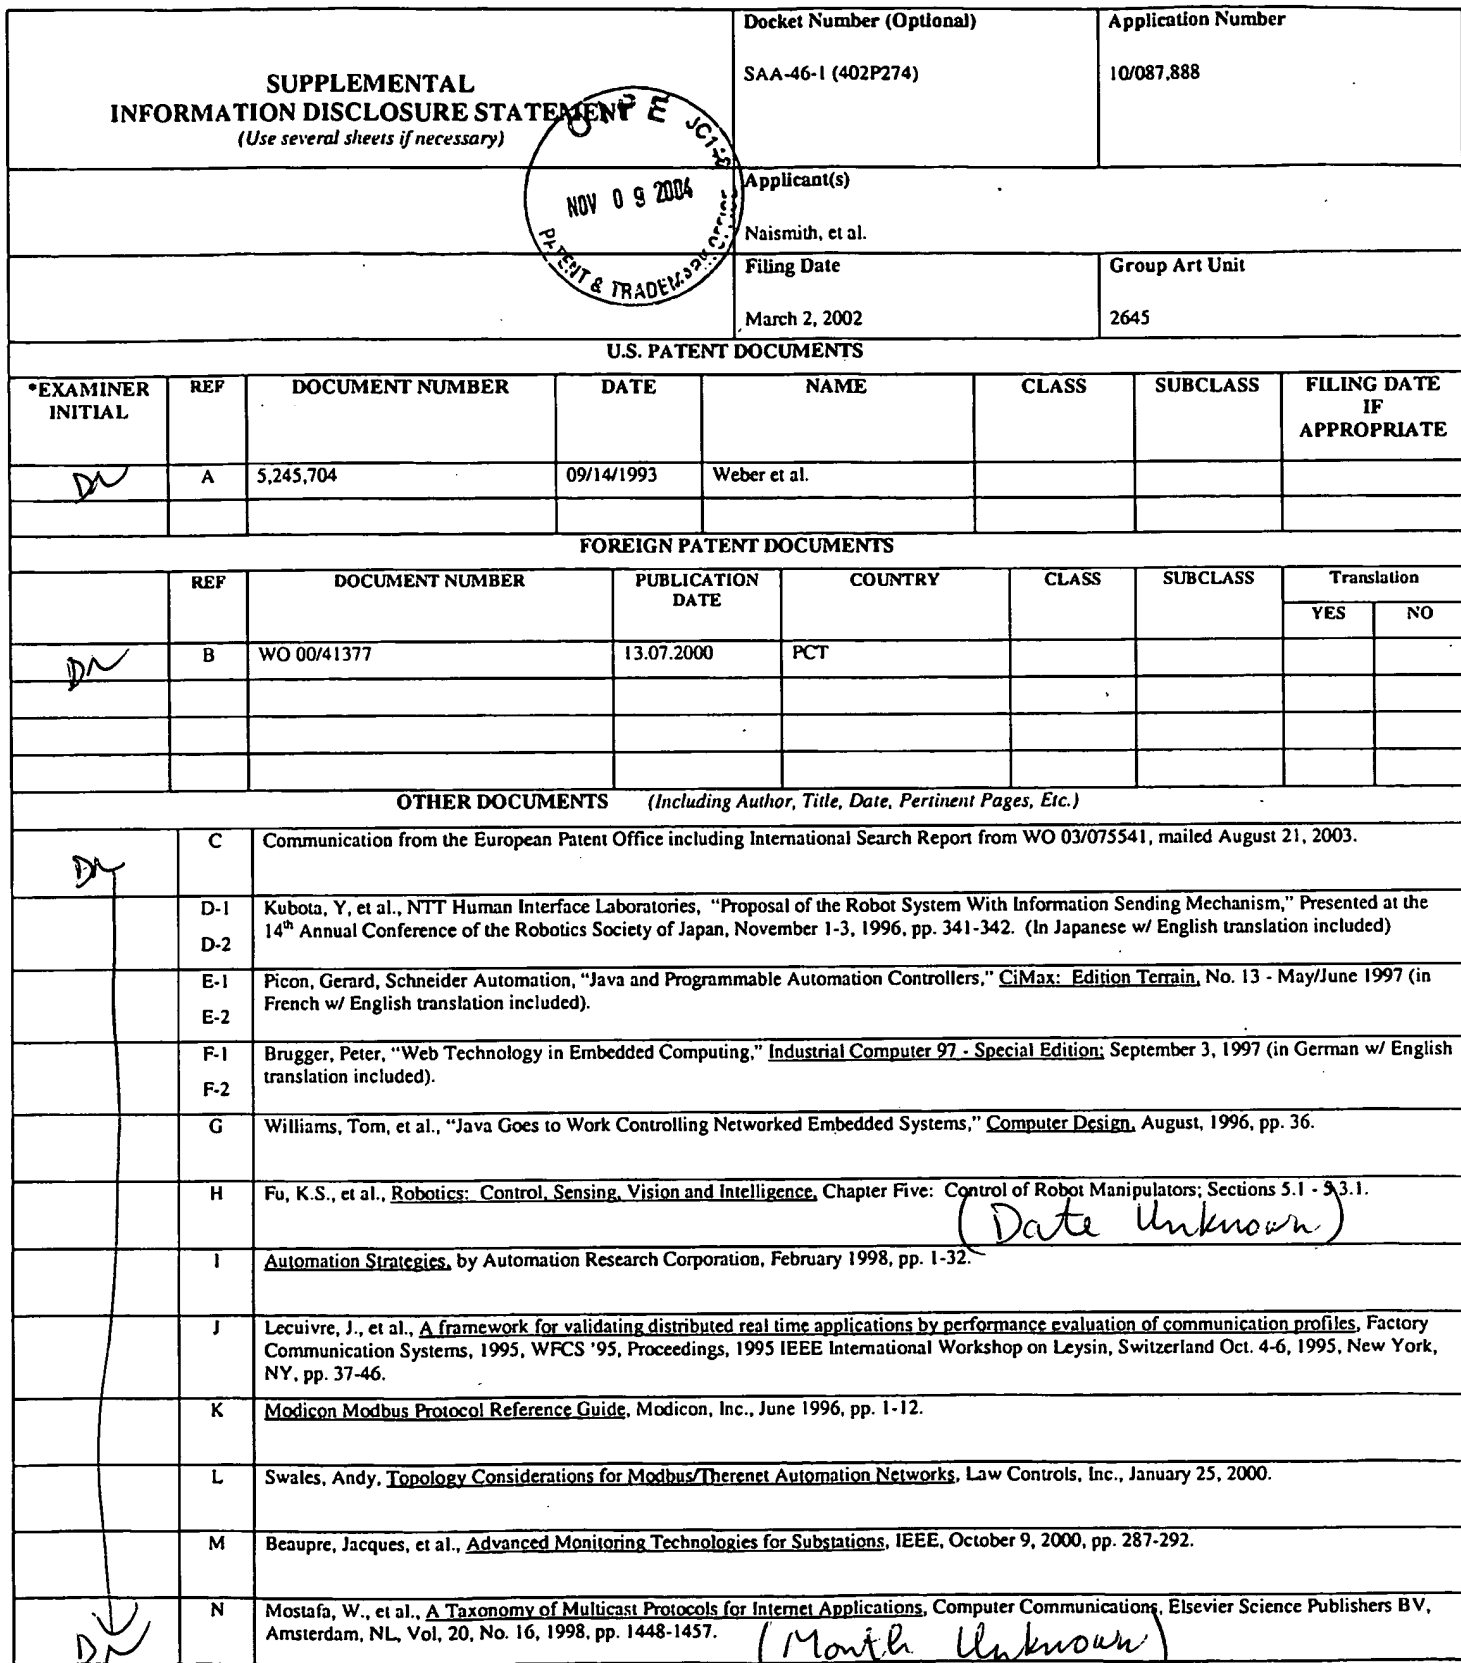 Docket Number (Optional)
SAA-46-1 (402P274)
Application Number
10/087,888
SUPPLEMENTAL
INFORMATION DISCLOSURE STATEMENT
(Use several sheets if necessary)
O I P E
NOV 0 9 2004
PATENT & TRADEMARK OFFICE
Applicant(s)
Naismith, et al.
Filing Date
March 2, 2002
Group Art Unit
2645
U.S. PATENT DOCUMENTS
*EXAMINER INITIAL REF DOCUMENT NUMBER DATE NAME CLASS SUBCLASS FILING DATE IF APPROPRIATE
DN A 5,245,704 09/14/1993 Weber et al.
FOREIGN PATENT DOCUMENTS
REF DOCUMENT NUMBER PUBLICATION DATE COUNTRY CLASS SUBCLASS Translation
YES NO
DN B WO 00/41377 13.07.2000 PCT
OTHER DOCUMENTS (Including Author, Title, Date, Pertinent Pages, Etc.)
DN C Communication from the European Patent Office including International Search Report from WO 03/075541, mailed August 21, 2003.
D-1 Kubota, Y, et al., NTT Human Interface Laboratories, “Proposal of the Robot System With Information Sending Mechanism,” Presented at the
D-2 14th Annual Conference of the Robotics Society of Japan, November 1-3, 1996, pp. 341-342. (In Japanese w/ English translation included)
E-1 Picon, Gerard, Schneider Automation, “Java and Programmable Automation Controllers,” CiMax: Edition Terrain, No. 13 - May/June 1997 (in
E-2 French w/ English translation included).
F-1 Brugger, Peter, “Web Technology in Embedded Computing,” Industrial Computer 97 - Special Edition; September 3, 1997 (in German w/ English
F-2 translation included).
G Williams, Tom, et al., “Java Goes to Work Controlling Networked Embedded Systems,” Computer Design, August, 1996, pp. 36.
H Fu, K.S., et al., Robotics: Control, Sensing, Vision and Intelligence, Chapter Five: Control of Robot Manipulators; Sections 5.1 - 5.3.1.
(Date Unknown)
I Automation Strategies, by Automation Research Corporation, February 1998, pp. 1-32.
J Lecuivre, J., et al., A framework for validating distributed real time applications by performance evaluation of communication profiles, Factory
Communication Systems, 1995, WFCS '95, Proceedings, 1995 IEEE International Workshop on Leysin, Switzerland Oct. 4-6, 1995, New York,
NY, pp. 37-46.
K Modicon Modbus Protocol Reference Guide, Modicon, Inc., June 1996, pp. 1-12.
L Swales, Andy, Topology Considerations for Modbus/Therenet Automation Networks, Law Controls, Inc., January 25, 2000.
M Beaupre, Jacques, et al., Advanced Monitoring Technologies for Substations, IEEE, October 9, 2000, pp. 287-292.
N Mostafa, W., et al., A Taxonomy of Multicast Protocols for Internet Applications, Computer Communications, Elsevier Science Publishers BV,
Amsterdam, NL, Vol, 20, No. 16, 1998, pp. 1448-1457.
(Month Unknown)
DN